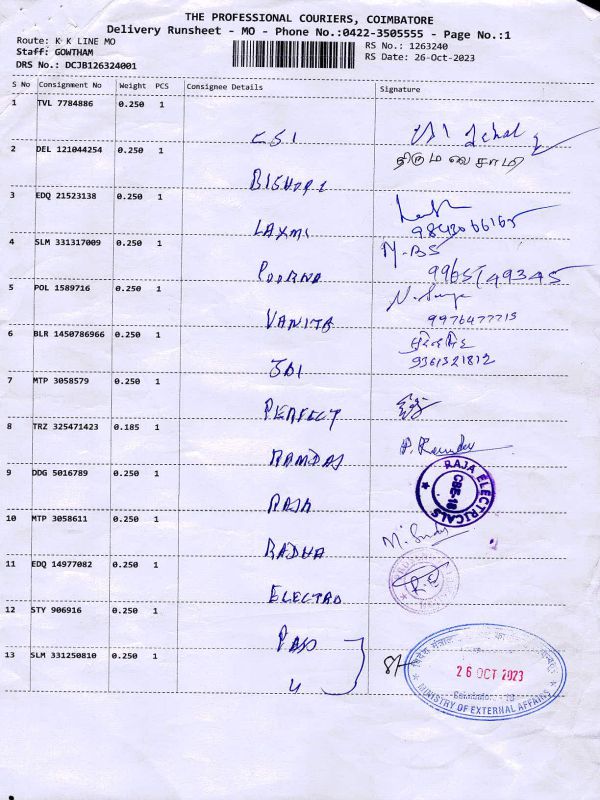 THE PROFESSIONAL COURIERS, COIMBATORE
Delivery Runsheet - MO - Phone No.:0422-3505555 - Page No.:1
Route: K K LINE MO
Staff: GOWTHAM
DRS No.: DCJB126324001
RS No.: 1263240
RS Date: 26-Oct-2023
S No Consignment No Weight PCS Consignee Details Signature
1 TVL 7784886 0.250 1 CSI
2 DEL 121044254 0.250 1 BISHOPS திருமலைசாமி
3 EDQ 21523138 0.250 1 LAXMI 9843066165
4 SLM 331317009 0.250 1 POORNA M.BS 9965149345
5 POL 1589716 0.250 1 VANITA 9976477715
6 BLR 1450786966 0.250 1 JAI 9361321812
7 MTP 3058579 0.250 1 PERFECT
8 TRZ 325471423 0.185 1 RAMDAS
9 DDG 5016789 0.250 1 RAJA RAJA ELECTRICALS CBE-18
10 MTP 3058611 0.250 1 RADHA
11 EDQ 14977082 0.250 1 ELECTRO
12 STY 906916 0.250 1 PASS
13 SLM 331250810 0.250 1 "
26 OCT 2023
MINISTRY OF EXTERNAL AFFAIRS